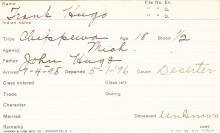 Name Frank Hugo File No. Ent.
Indian name " " G.
Tribe Chippewa Age 18 Blood 1/2
Agency Mich. " " G.
Father John Hugo
Arrived 9-4-95 Departed 5-1-96 Cause Deserter
Class Entered Class Left
Trade Outing
Character
Married Deceased Unknown
Remarks